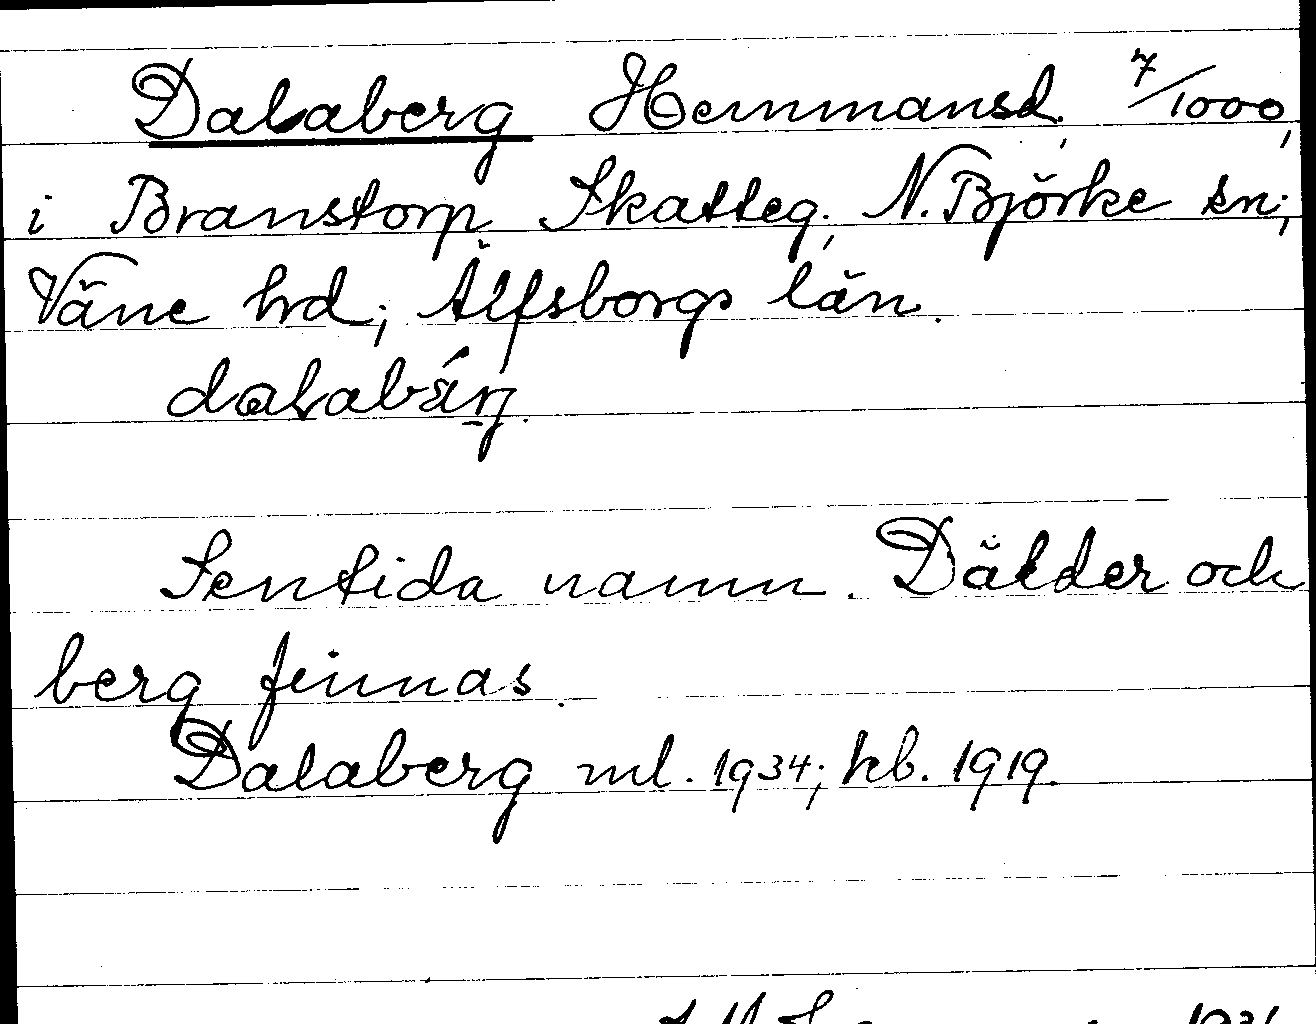 Dalaberg Hemmansd. 7/1000,
i Branstorp Skatteg., N. Björke sn;
Väne hrd; Älfsborgs län.
Sentida namn. Dälder och
berg finnas.
Dalaberg ml. 1934; kb. 1919.